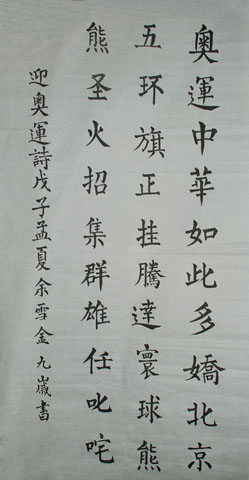 奧運中華如此多嬌北京
五环旗正挂騰達寰球熊
熊圣火招集群雄任叱咤
迎奧運詩戊子孟夏余雪金九歲書